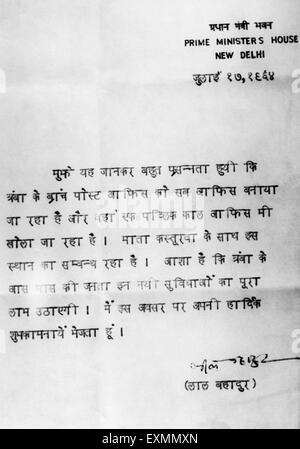 प्रधान मंत्री भवन
PRIME MINISTER'S HOUSE
NEW DELHI
जुलाई १७, १९६४
मुझे यह जानकर बहुत प्रसन्नता हुयी कि
त्रंबा के ब्रांच पोस्ट आफिस को सब आफिस बनाया
जा रहा है और वहां एक पब्लिक काल आफिस भी
खोला जा रहा है । माता कस्तूरबा के साथ इस
स्थान का सम्बन्ध रहा है । आशा है कि त्रंबा के
आस पास की जनता इन नयी सुविधाओं का पूरा
लाभ उठाएगी । मैं इस अवसर पर अपनी हार्दिक
शुभकामनायें भेजता हूं ।
लाल बहादुर
(लाल बहादुर)
alamy
EXMMXN
www.alamy.com